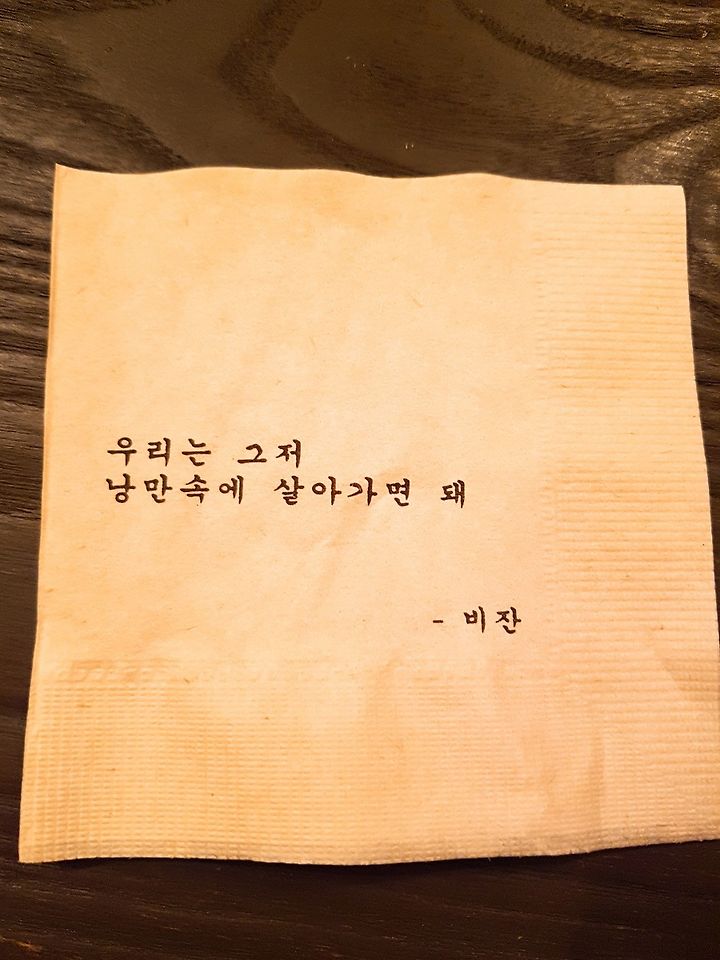 우리는 그저
낭만속에 살아가면 돼
- 비잔